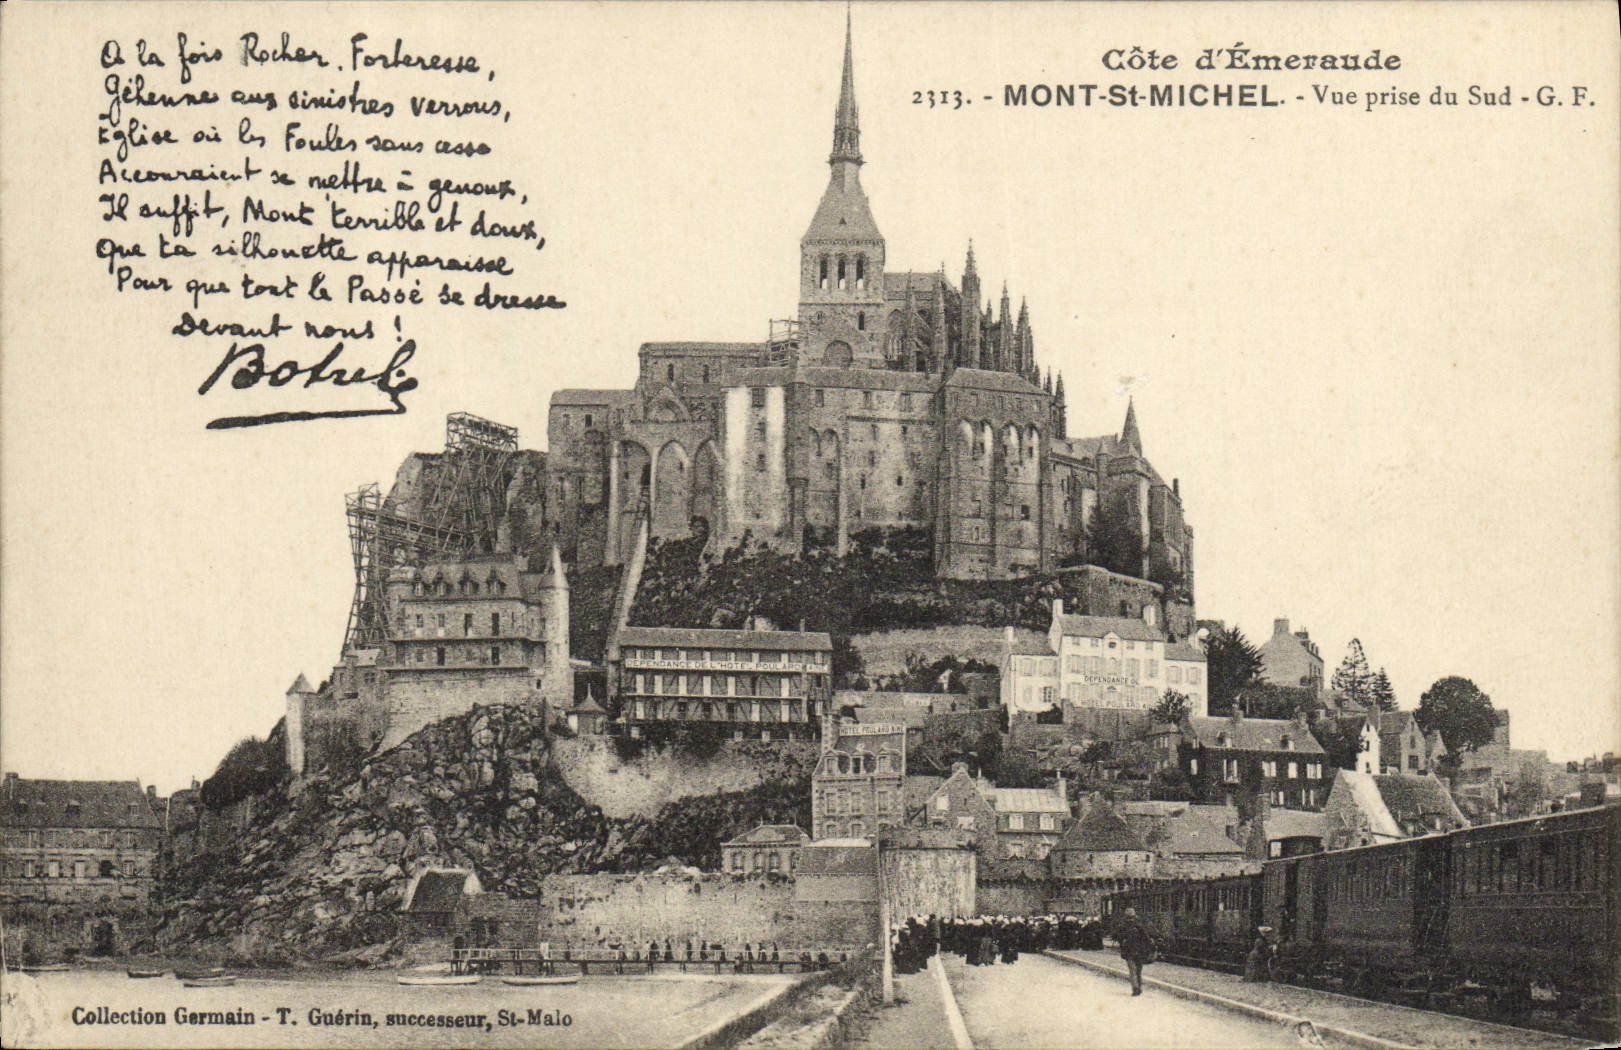 A la fois Rocher, Forteresse,
Géhenne aux sinistres verrous,
Église où les Foules sans cesse
Accouraient se mettre à genoux,
Il suffit, Mont terrible et doux,
Que ta silhouette apparaisse
Pour que tout le Passé se dresse
Devant nous !
Botrel
Côte d'Émeraude
2313. - MONT-St-MICHEL. - Vue prise du Sud - G. F.
DEPENDANCE DE L'HOTEL POULARD
DEPENDANCE DE
HOTEL POULARD AINE
Collection Germain - T. Guérin, successeur, St-Malo